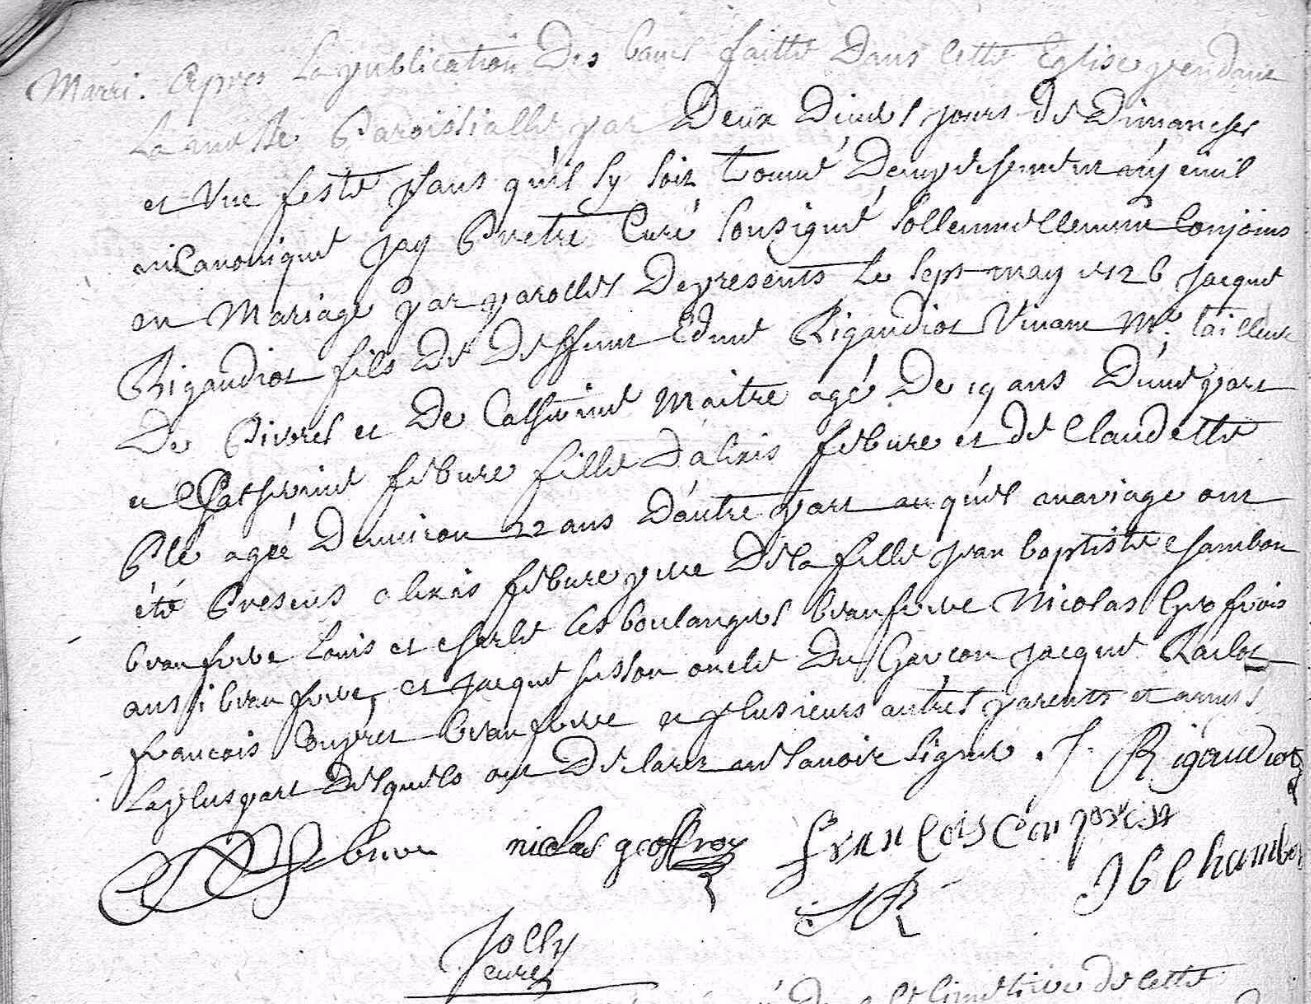 Marri. Apres la publication des bans faitte dans cette Eglise pendant
la messe Paroissialle par deux divers jours de dimanches
et une feste sans qu'il sy soit trouvé d'empeschement ny civil
ni Canonique jay Pretre Curé soussigné sollemnellement Conjoins
en Mariage par parolles de presents le sept may 1726 jacque
Rigaudiot fils de deffunt Edme Rigaudiot Vivant Me. tailleur
de Pivres et de Catherine Maitre agé de 19 ans d'une part
et Catherine febure fille d'alixis febure et de Claudette
Plé agée d'environ 22 ans d'autre part auquel mariage ont
été Presens alixis febure pere de la fille jean baptiste chambon
beaufrere Louis et charle les boulangers beaufrere Nicolas Geofrois
aussi beaufrere, et jacque husson oncle du Garcon jacque Raclot
francois Compret beaufrere et plusieurs autres parents et amis
la plus part desquels ont declarez ne scavoir signer. J. Rigaudiot
A febure nicolas geoffroy françois
J R J b Chambon
Jolly
curé
Cimetiere de cette